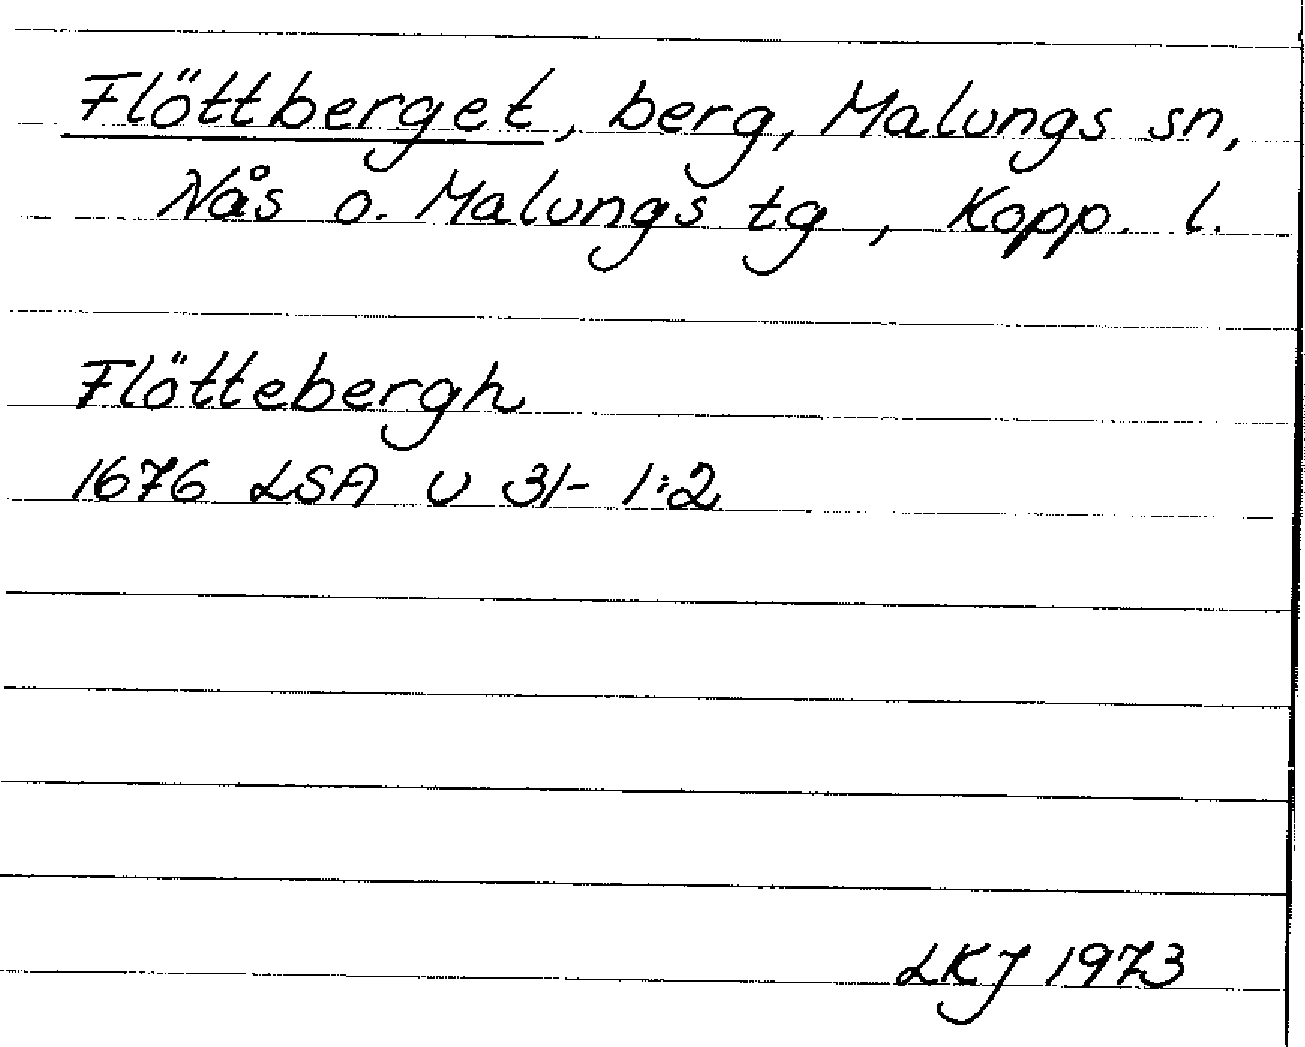 Flöttberget, berg, Malungs sn,
Nås o. Malungs tg, Kopp. l.
Flöttebergh
1676 LSA U 31-1:2
LKJ 1973